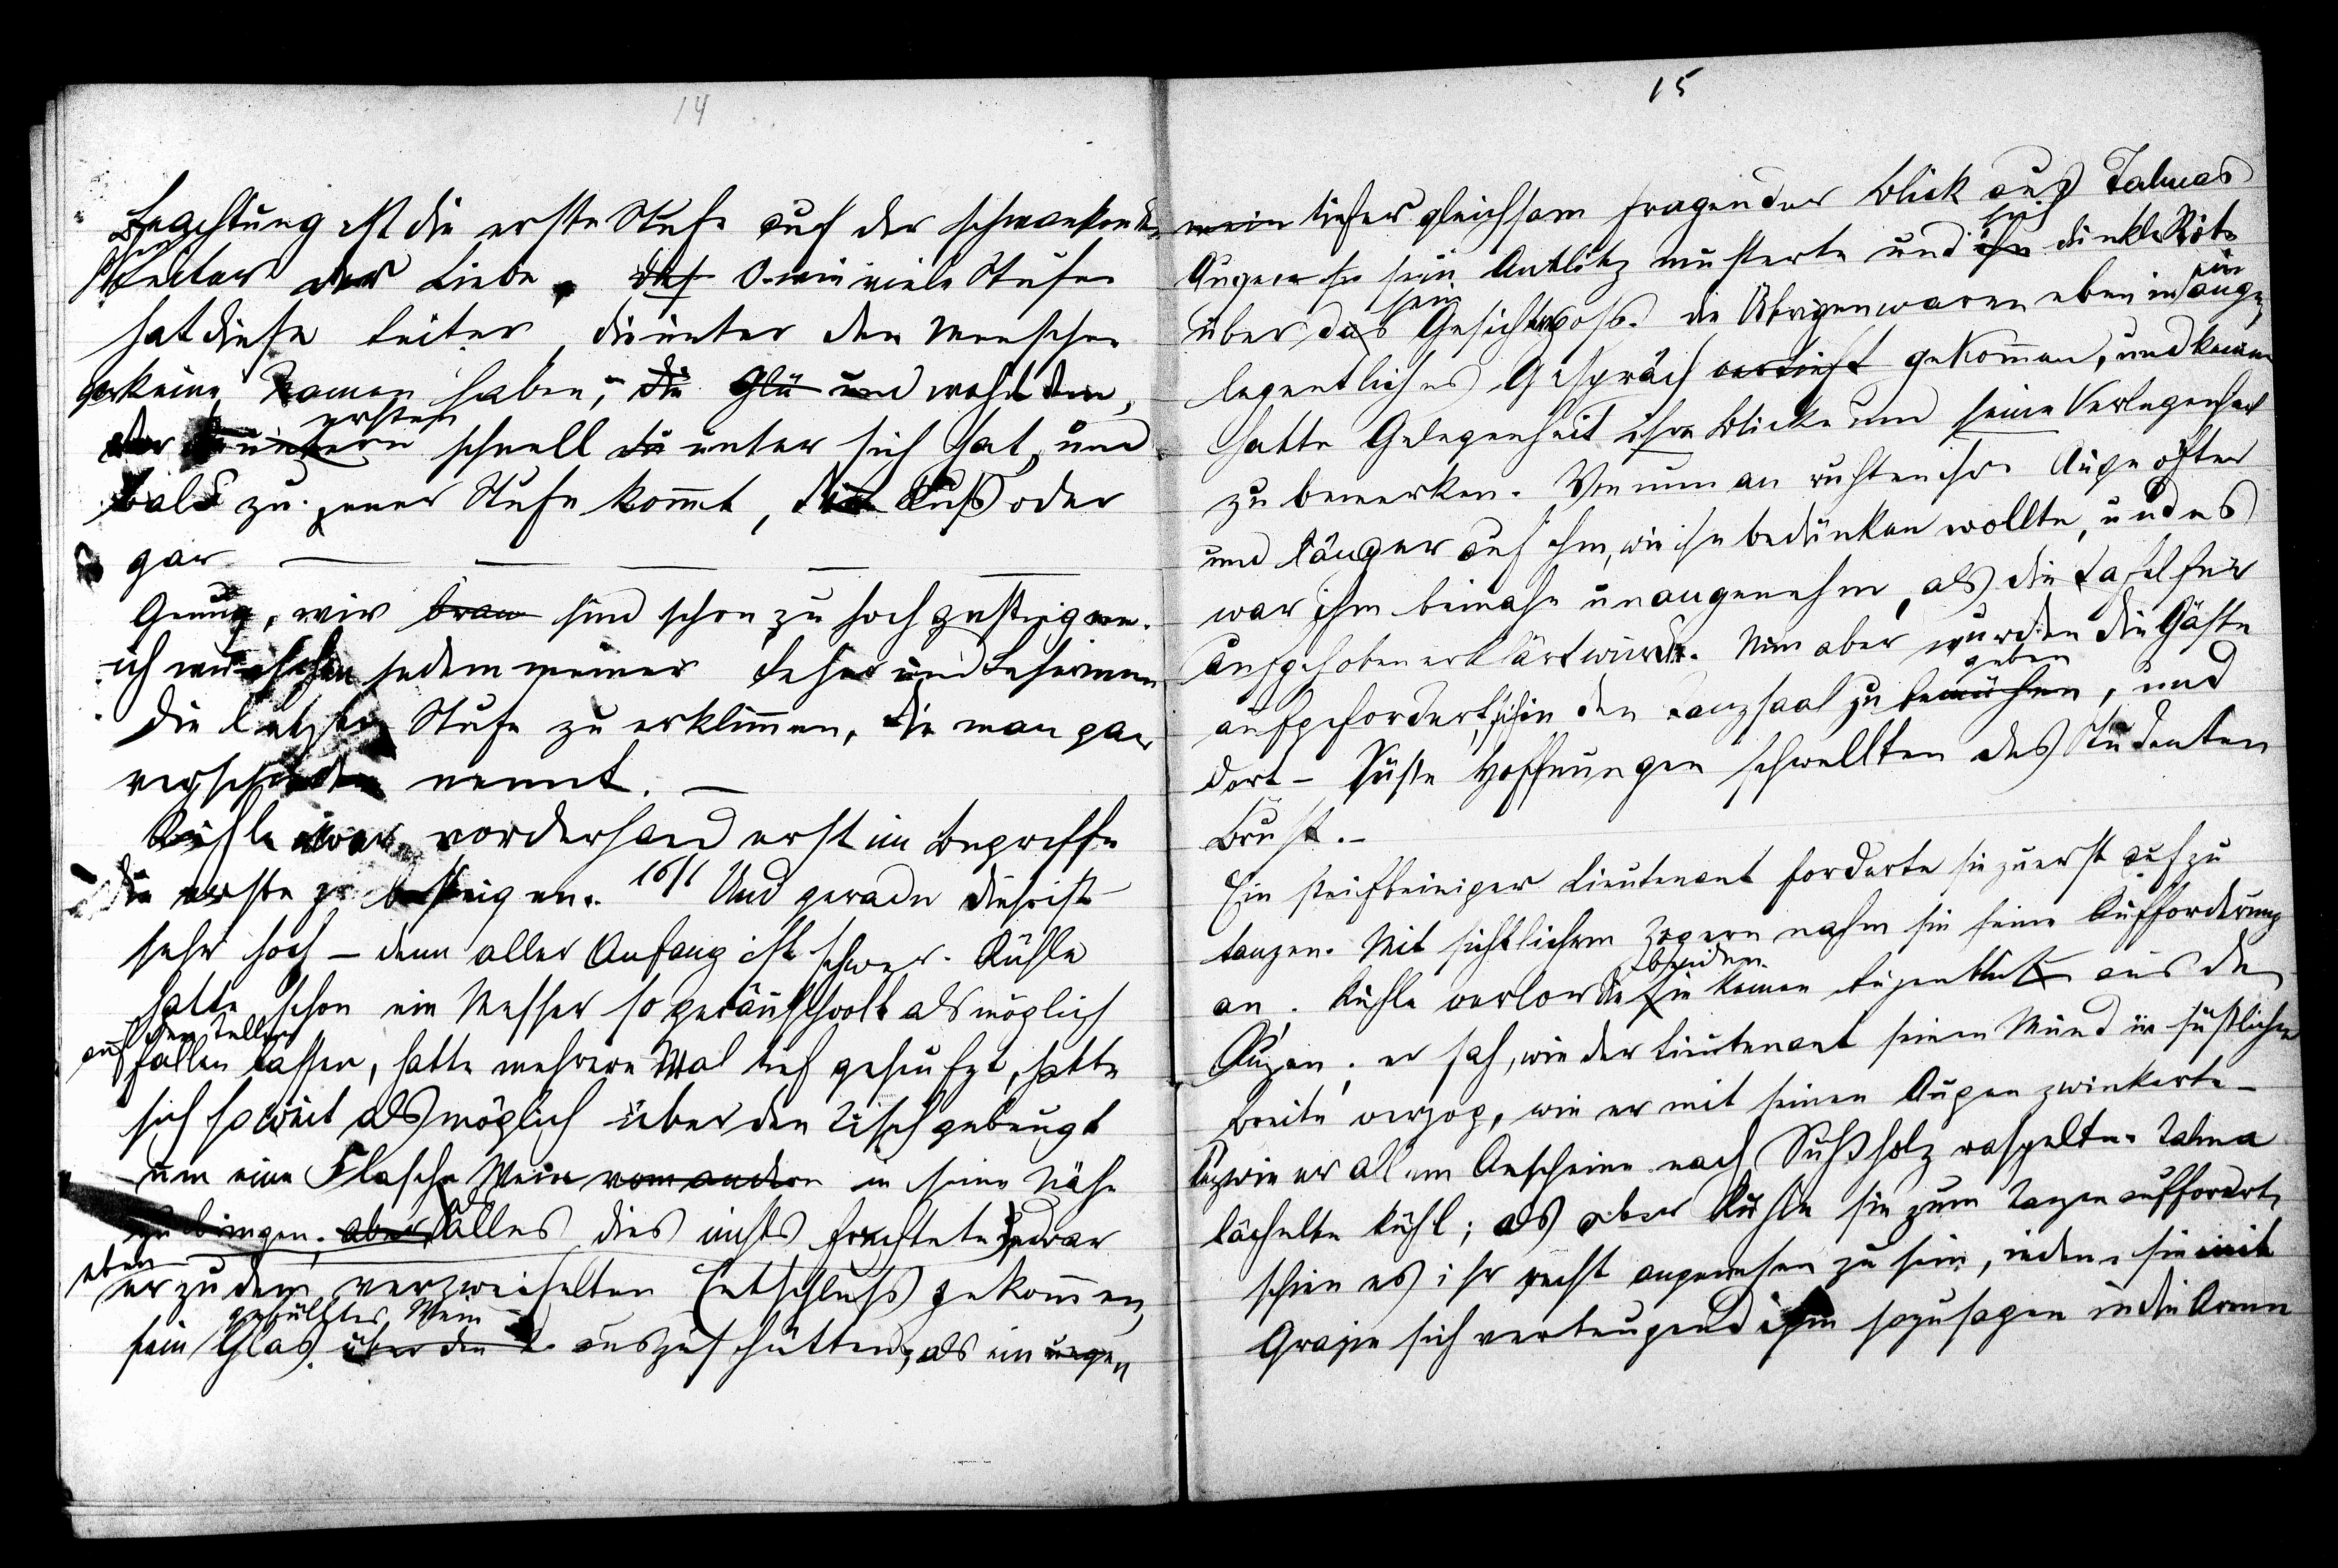 14
Beachtung ist die erste Stufe auf der schwankenden
Leiter der Liebe. O wie viele Stufen
hat diese Leiter, die unter den Menschen
gar keine Namen haben, die Glü und wohl dem,
ersten
der schnell die unter sich hat, und
bald zu jener Stufe kommt, die Kuß oder
gar — — — — —
Genug, wir brau sind schon zu hoch gestiegen.
ich wünsche jedem meiner Leser und Leserinnen
die letzte Stufe zu erklimmen, die man gar
verschieden nennt. —
Rühle war vorderhand erst im Begriffe
die erste zu besteigen. 16/1 Und gerade diese ist
sehr hoch — denn aller Anfang ist schwer. Rühle
hatte schon ein Messer so geräuschvoll als möglich
auf den Teller
fallen lassen, hatte mehrere Mal tief geseufzt, hatte
sich so weit als möglich über den Tisch gebeugt
um eine Flasche Wein vom andern in seine Nähe
zu bringen. aber Alles dies nichts fruchtete, war
eben
er zu dem verzweifelten Entschluß gekommen,
gefülltes Wein
sein Glas über den auszuschütten, als ein
15
mein tiefer gleichsam fragender Blick aus Talmas
sich
Augen sein Antlitz musterte und ihn dunkle Röte
sein ein
über das Gesicht goß. die Übrigen waren eben in ange
legentliches Gespräch vertieft gekommen, und keiner
hatte Gelegenheit ihre Blicke und seine Verlegenheit
zu bemerken. Von nun an ruhten ihre Auge öfter
und länger auf ihm, wie ihn bedünken wollte, und es
war ihm beinahe unangenehm, als die Tafel für
aufgehoben erklärt wurde. Nun aber wurden die Gäste
geben
aufgefordert, sich in den Tanzsaal zu bemühen, und
dort — Süße Hoffnungen schwellten des Studenten
Brust. —
Ein steifbeiniger Lieutenant forderte sie zuerst auf zu
tanzen. Mit sichtlichem Zögern nahm sie seine Aufforderung
an. Rühle verlor die beiden keinen Augenblick aus den
Augen; er sah, wie der Lieutenant seinen Mund in süßlicher
Breite verzog, wie er mit seinen Augen zwinkerte —
wie er allem Anscheine nach Süßholz raspelte. Talma
lächelte kühl; als aber Rühle sie zum Tanzen aufforderte,
schien es ihr recht angenehm zu sein, indem sie mit
Grazie sich verbeugend ihm sozusagen in die Arme